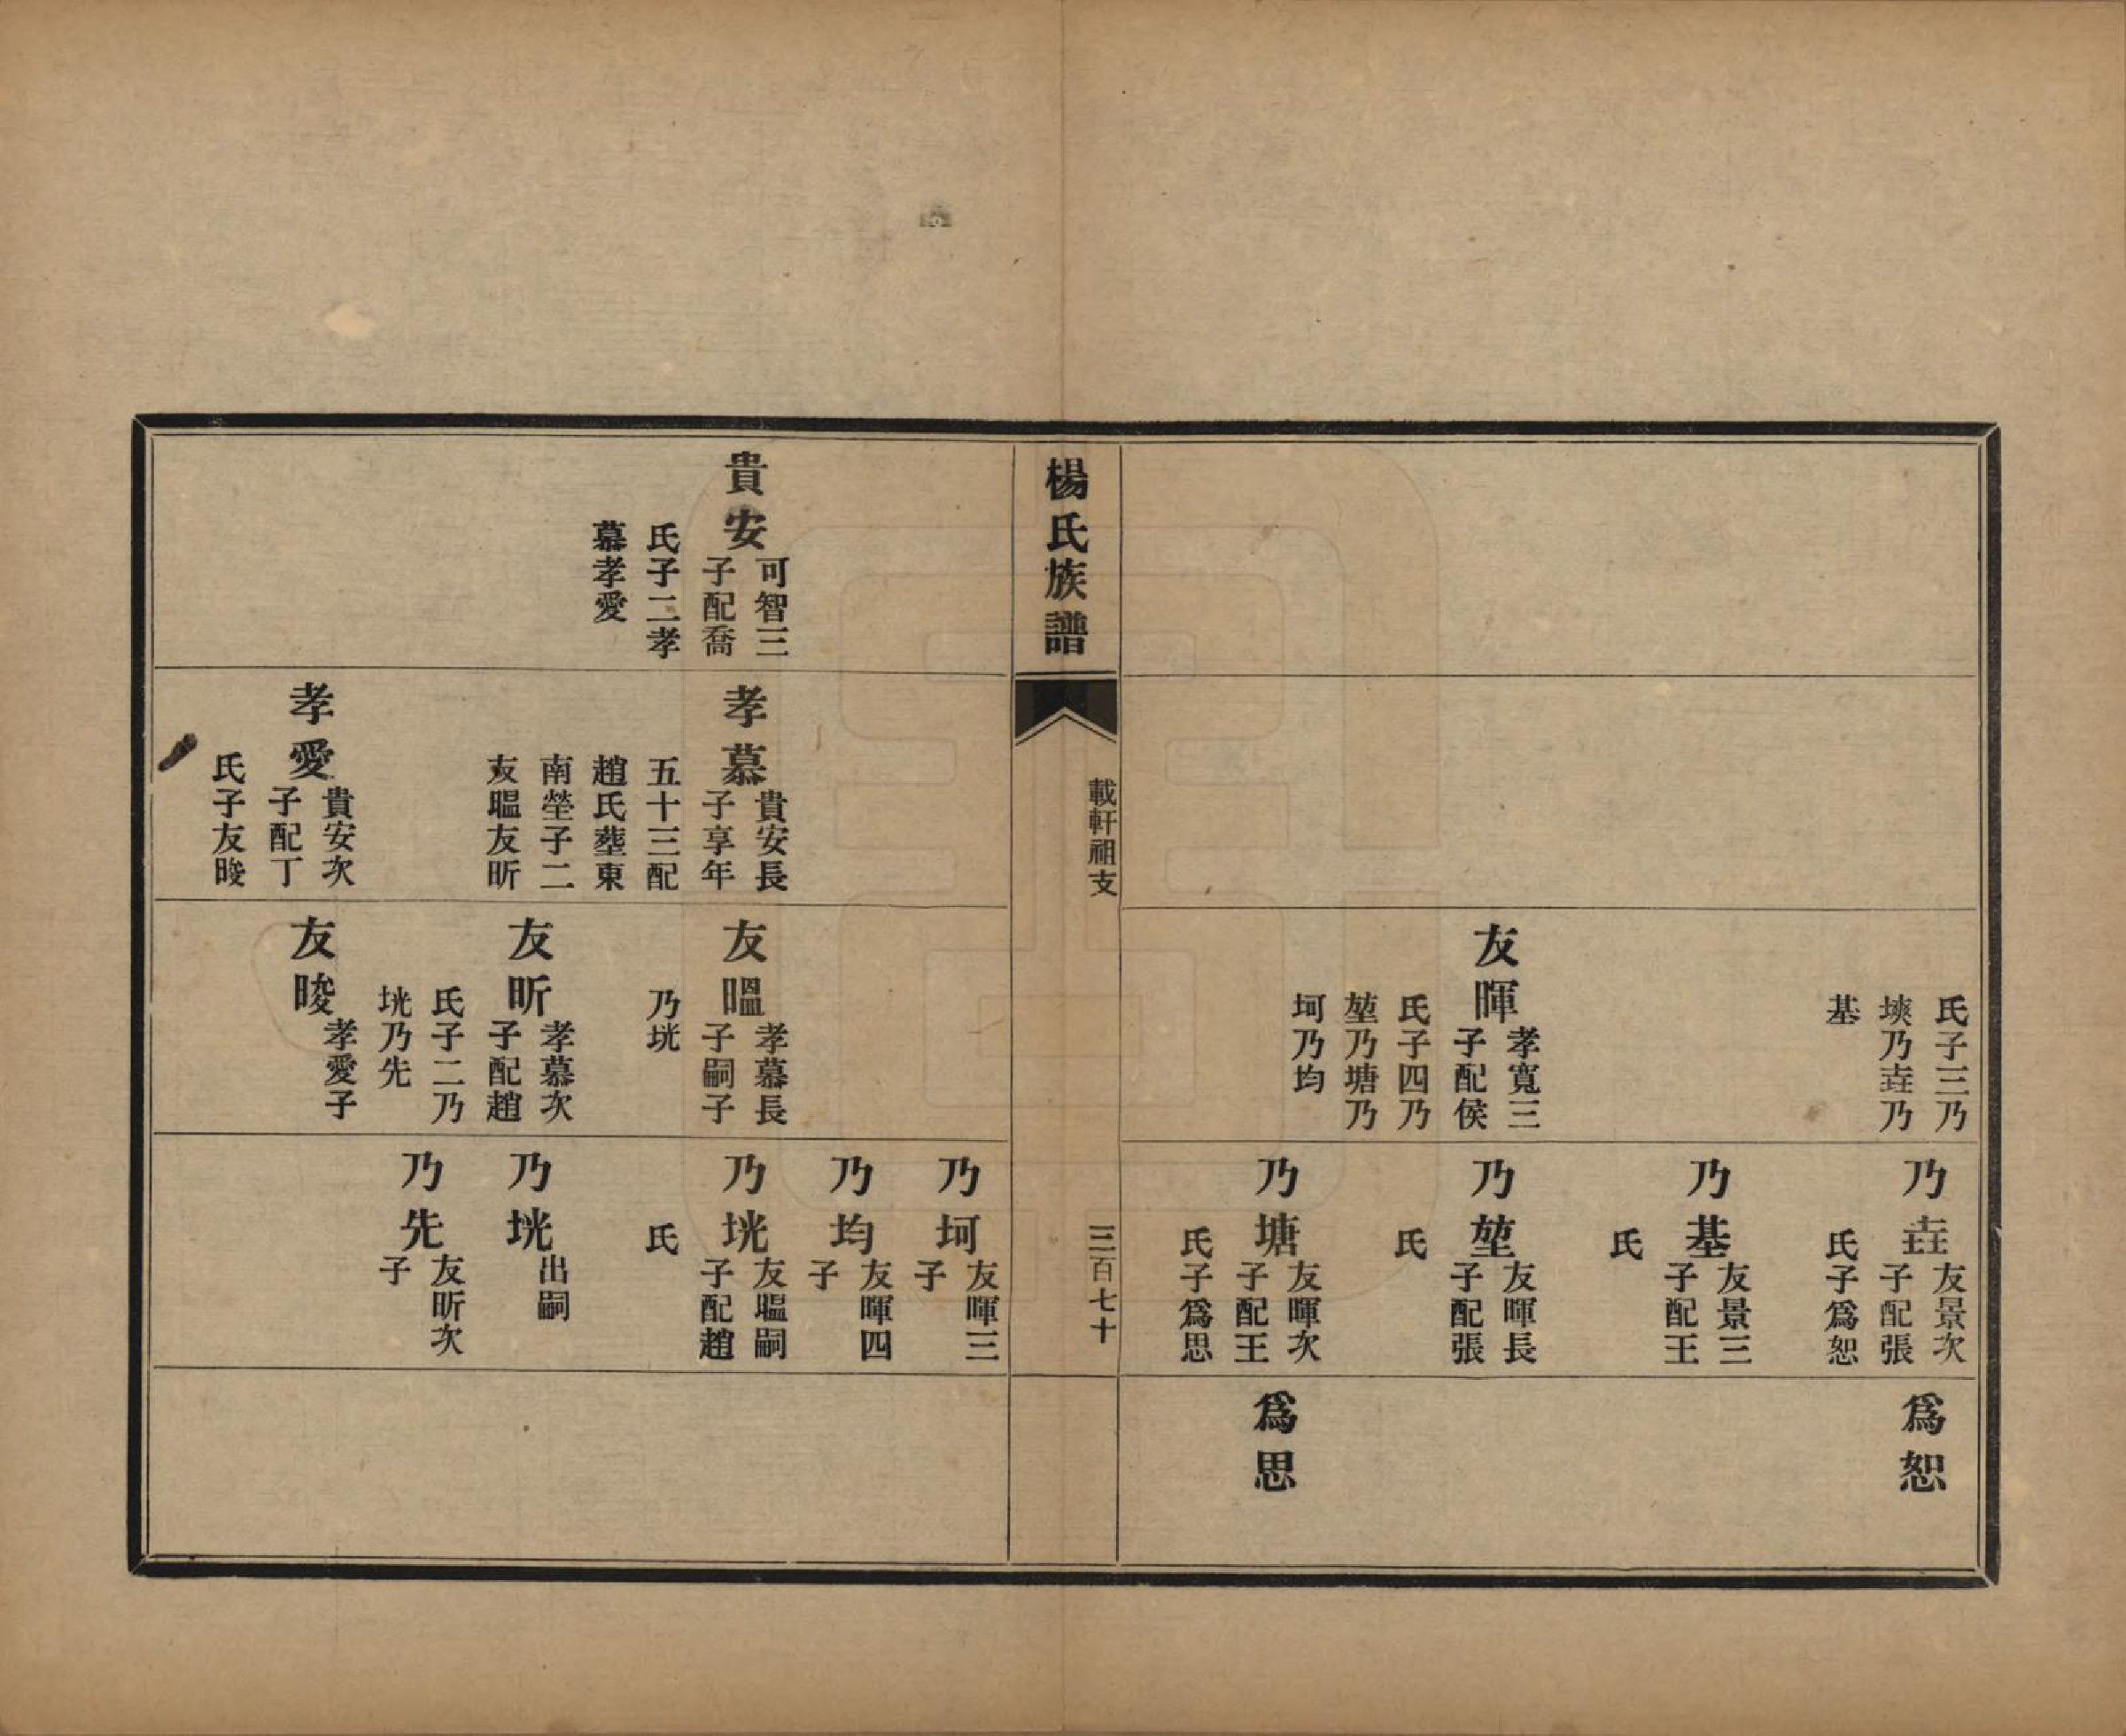 氏子三乃
墺乃壵乃
基
友暉
孝寬三
子配侯
氏子四乃
堃乃塘乃
坷乃均
乃壵
友景次
子配張
氏子爲恕
乃基
友景三
子配王
氏
乃堃
友暉長
子配張
氏
乃塘
友暉次
子配王
氏子爲思
爲恕
爲思
楊氏族譜
載軒祖支
三百七十
貴安
可智三
子配喬
氏子二孝
慕孝愛
孝慕
貴安長
子享年
五十三配
趙氏塟東
南塋子二
友昷友昕
孝愛
貴安次
子配丁
氏子友晙
友昷
孝慕長
子嗣子
乃垙
友昕
孝慕次
子配趙
氏子二乃
垙乃先
友晙
孝愛子
乃坷
友暉三
子
乃均
友暉四
子
乃垙
友昷嗣
子配趙
氏
乃垙
出嗣
乃先
友昕次
子